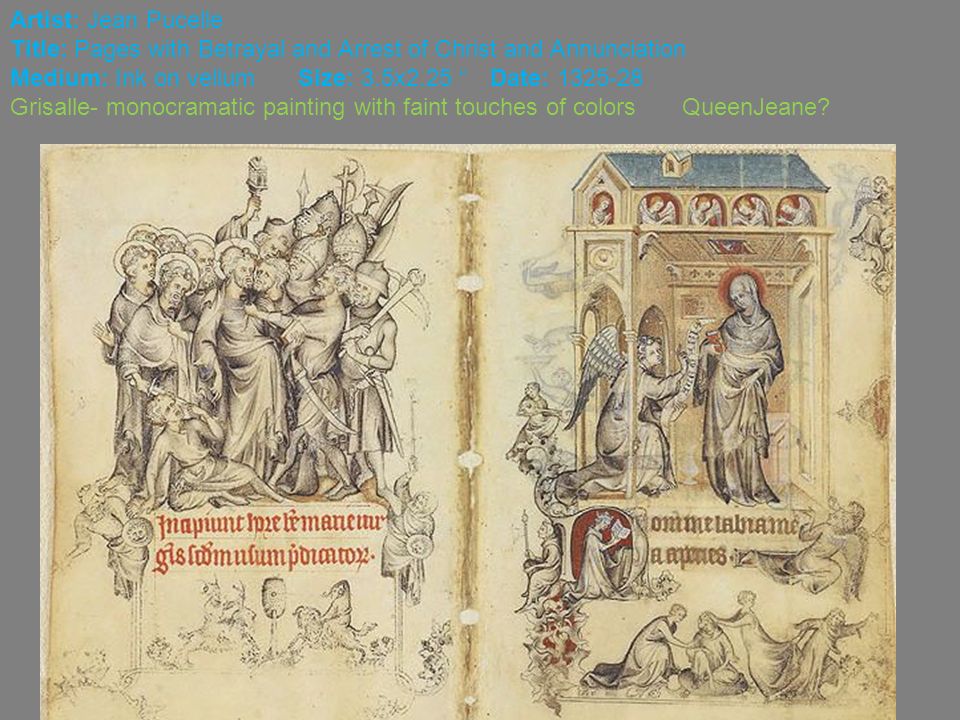 Artist: Jean Pucelle
Title: Pages with Betrayal and Arrest of Christ and Annunciation
Medium: Ink on vellum Size: 3.5x2.25 “ Date: 1325-28
Grisalle- monocramatic painting with faint touches of colors QueenJeane?
Incipiunt hore bē marie uir
gīs scdm usum p̄dicator.
Domine labia me
a aperies.